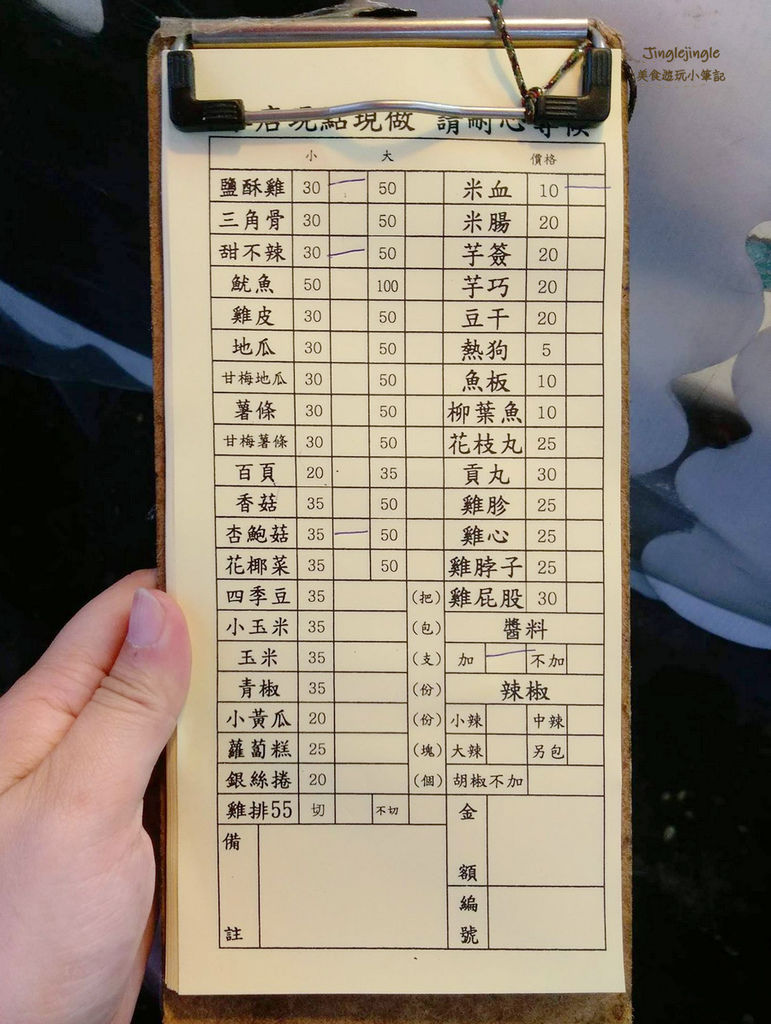 Jinglejingle
美食遊玩小筆記
店現點現做 請耐心等候
小 大 價格
鹽酥雞 30 50 米血 10
三角骨 30 50 米腸 20
甜不辣 30 50 芋簽 20
魷魚 50 100 芋巧 20
雞皮 30 50 豆干 20
地瓜 30 50 熱狗 5
甘梅地瓜 30 50 魚板 10
薯條 30 50 柳葉魚 10
甘梅薯條 30 50 花枝丸 25
百頁 20 35 貢丸 30
香菇 35 50 雞胗 25
杏鮑菇 35 50 雞心 25
花椰菜 35 50 雞脖子 25
四季豆 35 (把) 雞屁股 30
小玉米 35 (包) 醬料
玉米 35 (支) 加 不加
青椒 35 (份) 辣椒
小黃瓜 20 (份) 小辣 中辣
蘿蔔糕 25 (塊) 大辣 另包
銀絲捲 20 (個) 胡椒不加
雞排55 切 不切 金額
備註 編號